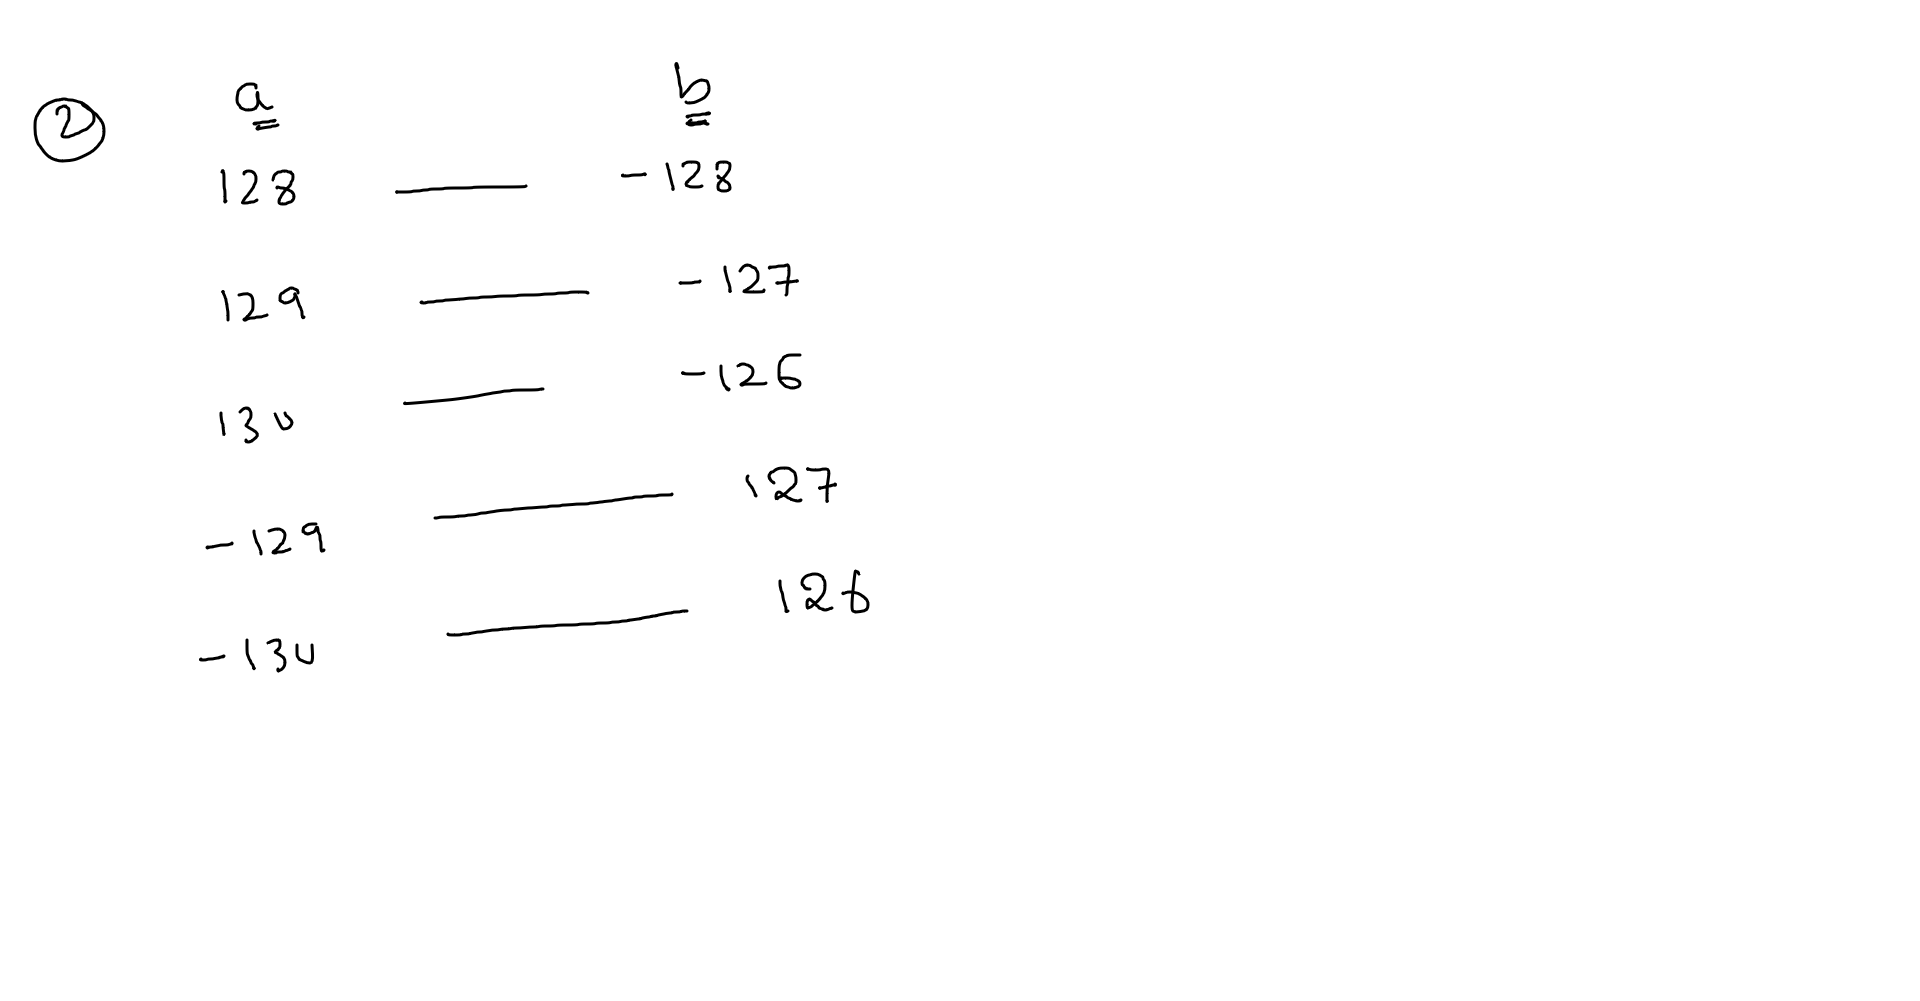 ② a b
128 — -128
129 — -127
130 — -126
-129 — 127
-130 — 126